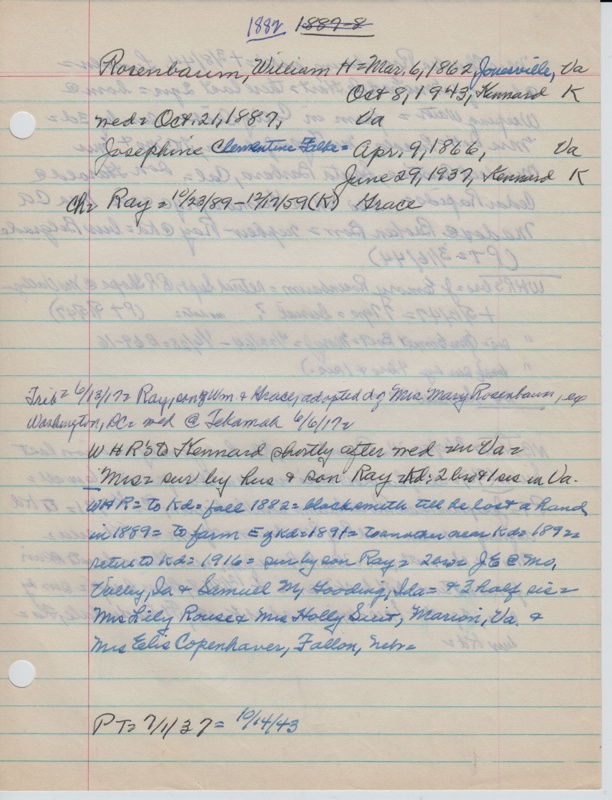 1882 1887-8
Rosenbaum, William H = Mar. 6, 1862 Jonesville, Va
Oct 8, 1943, Kennard K
med = Oct. 21, 1887, Va
Josephine Clementine Falke = Apr. 9, 1866, Va
June 29, 1937, Kennard K
Ch = Ray = 10/23/89 - 12/12/59 (K) Grace
Trib = 6/13/17 = Ray, son of Wm & Grace, adopted d of Mrs. Mary Rosenbaum, ex
Washington, DC = med @ Tekamah 6/6/17 =
WHR's to Kennard shortly after med in Va =
Mrs = sur by hus & son Ray = Kd: 2 bro & 1 sis in Va.
WHR = to Kd = fall 1882 = blacksmith till he lost a hand
in 1889 = to farm E of Kd = 1891 = to another near Kd = 1892 =
retire to Kd = 1916 = sur by son Ray = 2 bro = J E @ Mo.
Valley, Ia & Samuel M, Gooding, Ida = & 2 half sis =
Mrs Lily Rouse & Mrs Holly, Marion, Va. &
Mrs Copenhaver, Fallon, =
PT = 7/1/37 = 10/14/43